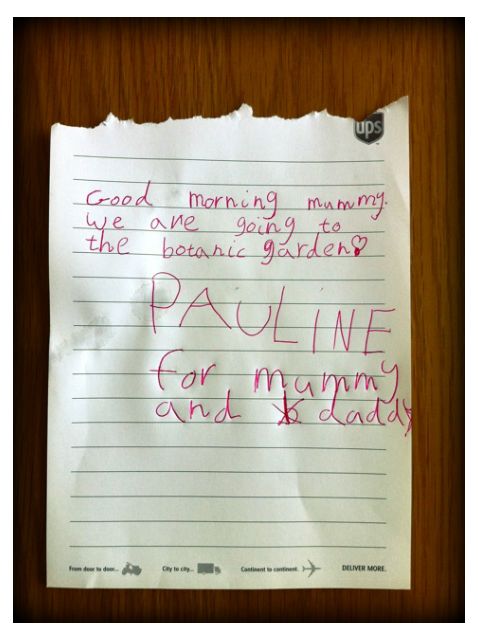 ups
Good morning mummy.
We are going to
the botanic garden
PAULINE
for mummy
and daddy
From door to door... City to city... Continent to continent. DELIVER MORE.